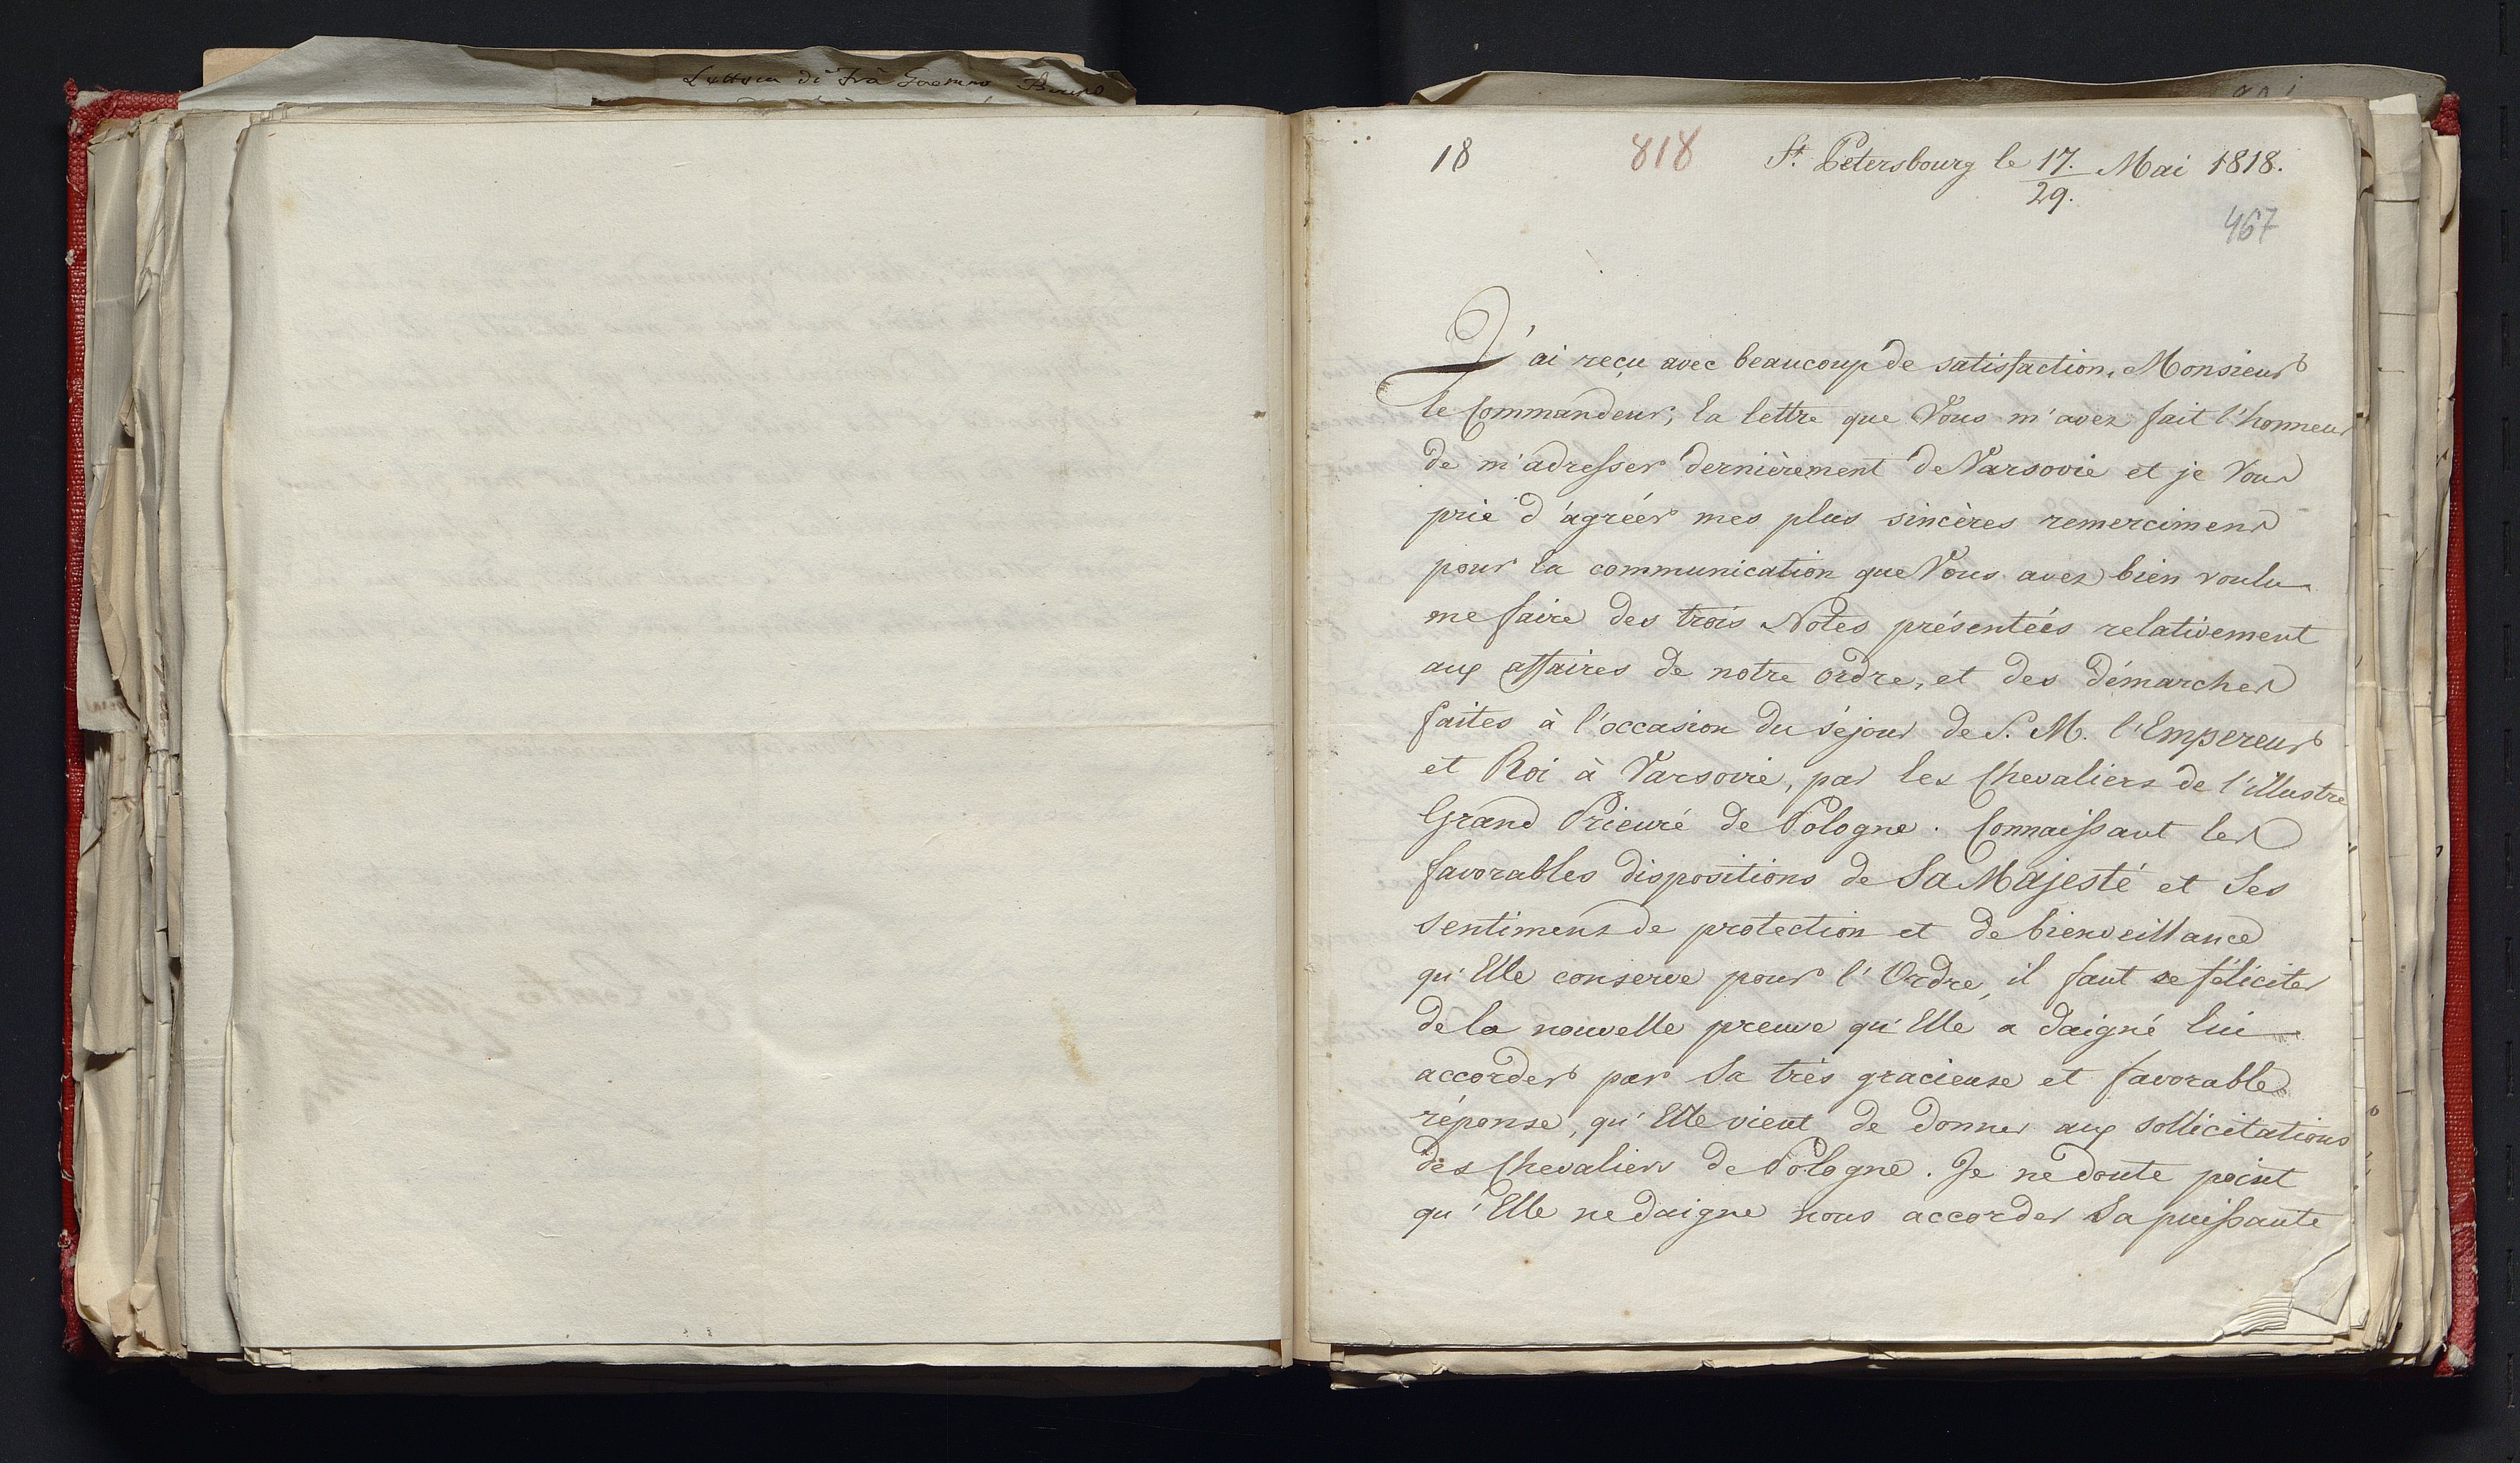 Lettera di Frà Gaetano Bruno
18 818 St. Petersbourg le 17. Mai 1818.
29.
467
J'ai reçu avec beaucoup de satisfaction, Monsieur
le Commandeur, la lettre que Vous m'avez fait l'honneur
de m'adresser dernièrement de Varsovie et je Vous
prie d'agréer mes plus sincères remercimens
pour la communication que Vous avez bien voulu
me faire des trois Notes présentées relativement
aux affaires de notre ordre, et des démarches
faites à l'occasion du séjour de S. M. l'Empereur
et Roi à Varsovie, par les Chevaliers de l'illustre
Grand Prieuré de Pologne. Connaissant les
favorables dispositions de Sa Majesté et Ses
sentimens de protection et de bienveillance
qu'Elle conserve pour l'Ordre, il faut se féliciter
de la nouvelle preuve qu'Elle a daigné lui
accorder par Sa très gracieuse et favorable
réponse, qu'Elle vient de donner aux sollicitations
des Chevaliers de Pologne. Je ne doute point
qu'Elle ne daigne nous accorder Sa puissante